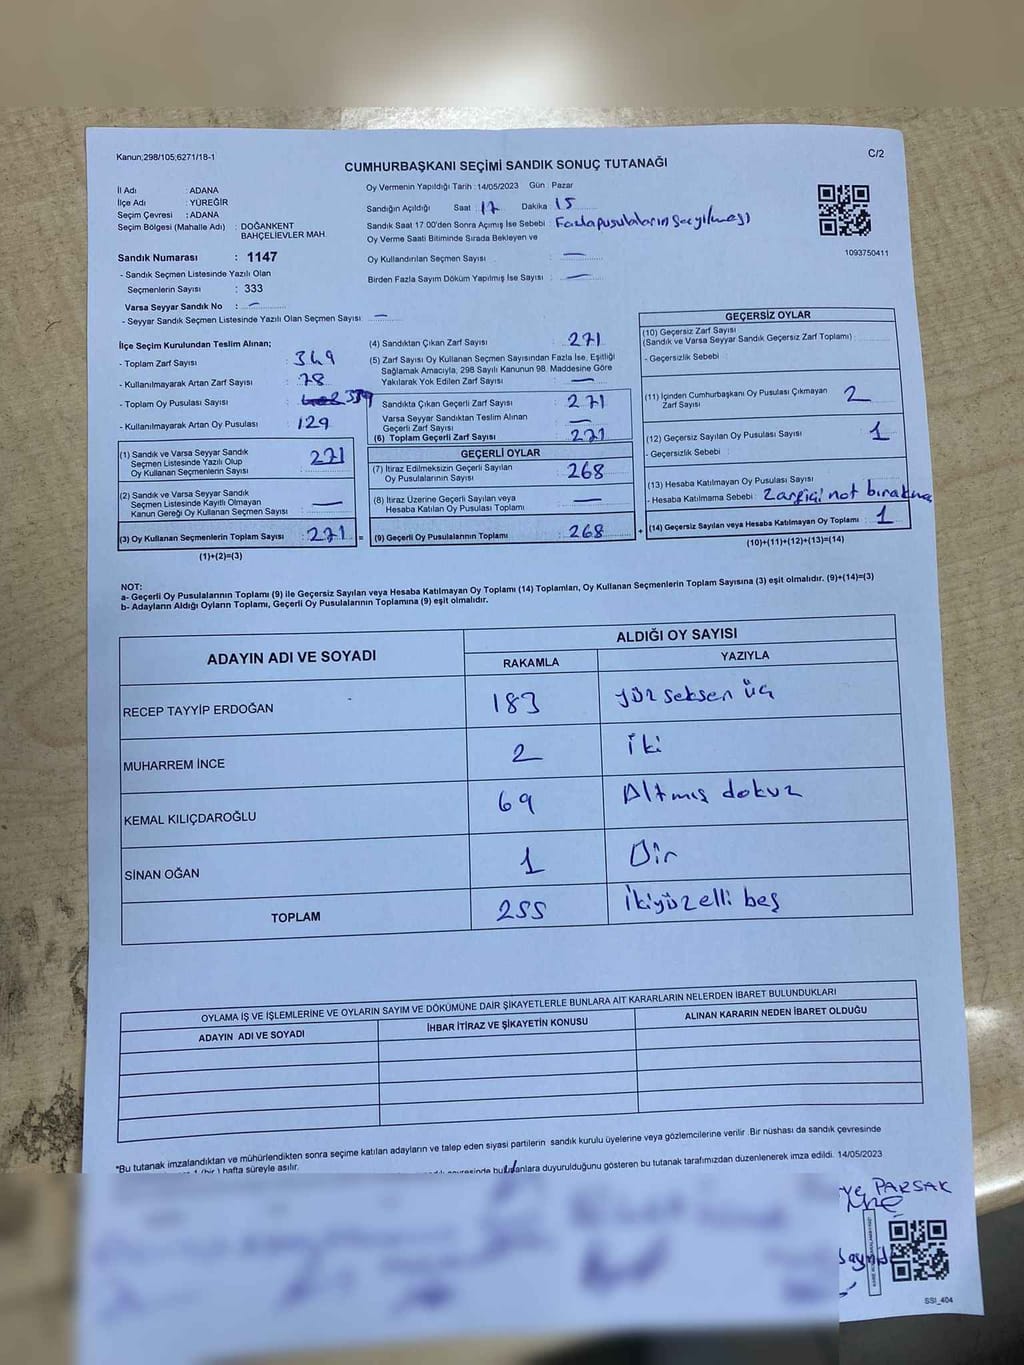 Kanun;298/105;6271/18-1
C/2
CUMHURBAŞKANI SEÇİMİ SANDIK SONUÇ TUTANAĞI
İl Adı : ADANA
İlçe Adı : YÜREĞİR
Seçim Çevresi : ADANA
Seçim Bölgesi (Mahalle Adı) : DOĞANKENT
BAHÇELİEVLER MAH.
Sandık Numarası : 1147
- Sandık Seçmen Listesinde Yazılı Olan
Seçmenlerin Sayısı : 333
Varsa Seyyar Sandık No : —
- Seyyar Sandık Seçmen Listesinde Yazılı Olan Seçmen Sayısı : —
Oy Vermenin Yapıldığı Tarih : 14/05/2023 Gün : Pazar
Sandığın Açıldığı Saat : 17 Dakika : 15
Sandık Saat 17.00'den Sonra Açımış İse Sebebi : Fazla pusulaların sayılması
Oy Verme Saati Bitiminde Sırada Bekleyen ve
Oy Kullandırılan Seçmen Sayısı : —
Birden Fazla Sayım Döküm Yapılmış İse Sayısı : —
1093750411
İlçe Seçim Kurulundan Teslim Alınan;
- Toplam Zarf Sayısı : 349
- Kullanılmayarak Artan Zarf Sayısı : 78
- Toplam Oy Pusulası Sayısı :
- Kullanılmayarak Artan Oy Pusulası : 129
(1) Sandık ve Varsa Seyyar Sandık
Seçmen Listesinde Yazılı Olup
Oy Kullanan Seçmenlerin Sayısı : 271
(2) Sandık ve Varsa Seyyar Sandık
Seçmen Listesinde Kayıtlı Olmayan
Kanun Gereği Oy Kullanan Seçmen Sayısı : —
(3) Oy Kullanan Seçmenlerin Toplam Sayısı : 271 =
(1)+(2)=(3)
(4) Sandıktan Çıkan Zarf Sayısı : 271
(5) Zarf Sayısı Oy Kullanan Seçmen Sayısından Fazla İse, Eşitliği
Sağlamak Amacıyla, 298 Sayılı Kanunun 98. Maddesine Göre
Yakılarak Yok Edilen Zarf Sayısı : —
Sandıkta Çıkan Geçerli Zarf Sayısı : 271
Varsa Seyyar Sandıktan Teslim Alınan
Geçerli Zarf Sayısı : —
(6) Toplam Geçerli Zarf Sayısı : 271
GEÇERLİ OYLAR
(7) İtiraz Edilmeksizin Geçerli Sayılan
Oy Pusulalarının Sayısı : 268
(8) İtiraz Üzerine Geçerli Sayılan veya
Hesaba Katılan Oy Pusulası Toplamı : —
(9) Geçerli Oy Pusulalarının Toplamı : 268 +
GEÇERSİZ OYLAR
(10) Geçersiz Zarf Sayısı
(Sandık ve Varsa Seyyar Sandık Geçersiz Zarf Toplamı) :
- Geçersizlik Sebebi :
(11) İçinden Cumhurbaşkanı Oy Pusulası Çıkmayan
Zarf Sayısı : 2
(12) Geçersiz Sayılan Oy Pusulası Sayısı : 1
- Geçersizlik Sebebi :
(13) Hesaba Katılmayan Oy Pusulası Sayısı :
- Hesaba Katılmama Sebebi : Zarf içi not bırakma
(14) Geçersiz Sayılan veya Hesaba Katılmayan Oy Toplamı : 1
(10)+(11)+(12)+(13)=(14)
NOT:
a- Geçerli Oy Pusulalarının Toplamı (9) ile Geçersiz Sayılan veya Hesaba Katılmayan Oy Toplamı (14) Toplamları, Oy Kullanan Seçmenlerin Toplam Sayısına (3) eşit olmalıdır. (9)+(14)=(3)
b- Adayların Aldığı Oyların Toplamı, Geçerli Oy Pusulalarının Toplamına (9) eşit olmalıdır.
ADAYIN ADI VE SOYADI
ALDIĞI OY SAYISI
RAKAMLA YAZIYLA
RECEP TAYYİP ERDOĞAN 183 yüz seksen üç
MUHARREM İNCE 2 iki
KEMAL KILIÇDAROĞLU 69 Altmış dokuz
SİNAN OĞAN 1 Bir
TOPLAM 255 İkiyüzelli beş
OYLAMA İŞ VE İŞLEMLERİNE VE OYLARIN SAYIM VE DÖKÜMÜNE DAİR ŞİKAYETLERLE BUNLARA AİT KARARLARIN NELERDEN İBARET BULUNDUKLARI
ADAYIN ADI VE SOYADI İHBAR İTİRAZ VE ŞİKAYETİN KONUSU ALINAN KARARIN NEDEN İBARET OLDUĞU
*Bu tutanak imzalandıktan ve mühürlendikten sonra seçime katılan adayların ve talep eden siyasi partilerin sandık kurulu üyelerine veya gözlemcilerine verilir. Bir nüshası da sandık çevresinde
1 (bir) hafta süreyle asılır.
duyurulduğunu gösteren bu tutanak tarafımızdan düzenlenerek imza edildi. 14/05/2023
PARSAK
SSI_404